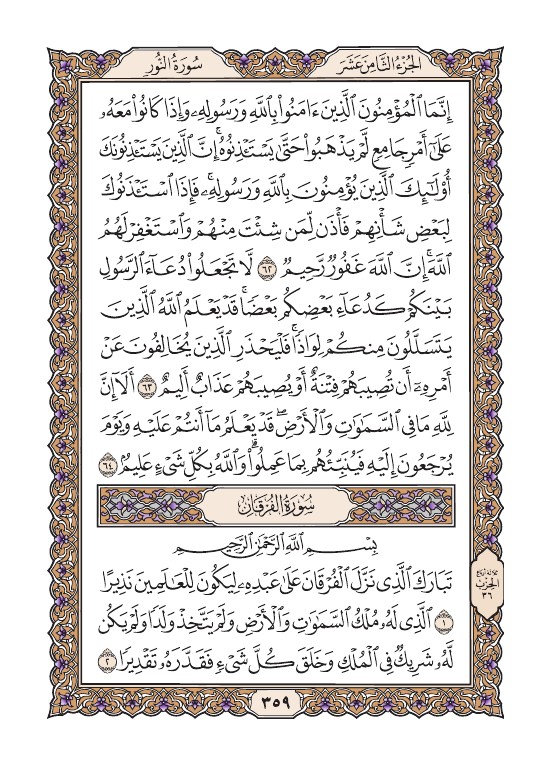 الجزء الثامن عشر
سورة النور
إِنَّمَا ٱلْمُؤْمِنُونَ ٱلَّذِينَ ءَامَنُوا۟ بِٱللَّهِ وَرَسُولِهِۦ وَإِذَا كَانُوا۟ مَعَهُۥ
عَلَىٰٓ أَمْرٍ جَامِعٍ لَّمْ يَذْهَبُوا۟ حَتَّىٰ يَسْتَـْٔذِنُوهُ ۚ إِنَّ ٱلَّذِينَ يَسْتَـْٔذِنُونَكَ
أُو۟لَـٰٓئِكَ ٱلَّذِينَ يُؤْمِنُونَ بِٱللَّهِ وَرَسُولِهِۦ ۚ فَإِذَا ٱسْتَـْٔذَنُوكَ
لِبَعْضِ شَأْنِهِمْ فَأْذَن لِّمَن شِئْتَ مِنْهُمْ وَٱسْتَغْفِرْ لَهُمُ
ٱللَّهَ ۚ إِنَّ ٱللَّهَ غَفُورٌ رَّحِيمٌ ٦٢ لَّا تَجْعَلُوا۟ دُعَآءَ ٱلرَّسُولِ
بَيْنَكُمْ كَدُعَآءِ بَعْضِكُم بَعْضًا ۚ قَدْ يَعْلَمُ ٱللَّهُ ٱلَّذِينَ
يَتَسَلَّلُونَ مِنكُمْ لِوَاذًا ۚ فَلْيَحْذَرِ ٱلَّذِينَ يُخَالِفُونَ عَنْ
أَمْرِهِۦٓ أَن تُصِيبَهُمْ فِتْنَةٌ أَوْ يُصِيبَهُمْ عَذَابٌ أَلِيمٌ ٦٣ أَلَآ إِنَّ
لِلَّهِ مَا فِى ٱلسَّمَـٰوَٰتِ وَٱلْأَرْضِ ۖ قَدْ يَعْلَمُ مَآ أَنتُمْ عَلَيْهِ وَيَوْمَ
يُرْجَعُونَ إِلَيْهِ فَيُنَبِّئُهُم بِمَا عَمِلُوا۟ ۗ وَٱللَّهُ بِكُلِّ شَىْءٍ عَلِيمٌۢ ٦٤
سُورَةُ الفُرْقَانِ
بِسْمِ ٱللَّهِ ٱلرَّحْمَـٰنِ ٱلرَّحِيمِ
تَبَارَكَ ٱلَّذِى نَزَّلَ ٱلْفُرْقَانَ عَلَىٰ عَبْدِهِۦ لِيَكُونَ لِلْعَـٰلَمِينَ نَذِيرًا
١ ٱلَّذِى لَهُۥ مُلْكُ ٱلسَّمَـٰوَٰتِ وَٱلْأَرْضِ وَلَمْ يَتَّخِذْ وَلَدًا وَلَمْ يَكُن
لَّهُۥ شَرِيكٌ فِى ٱلْمُلْكِ وَخَلَقَ كُلَّ شَىْءٍ فَقَدَّرَهُۥ تَقْدِيرًا ٢
الحزب
٣٦
٣٥٩